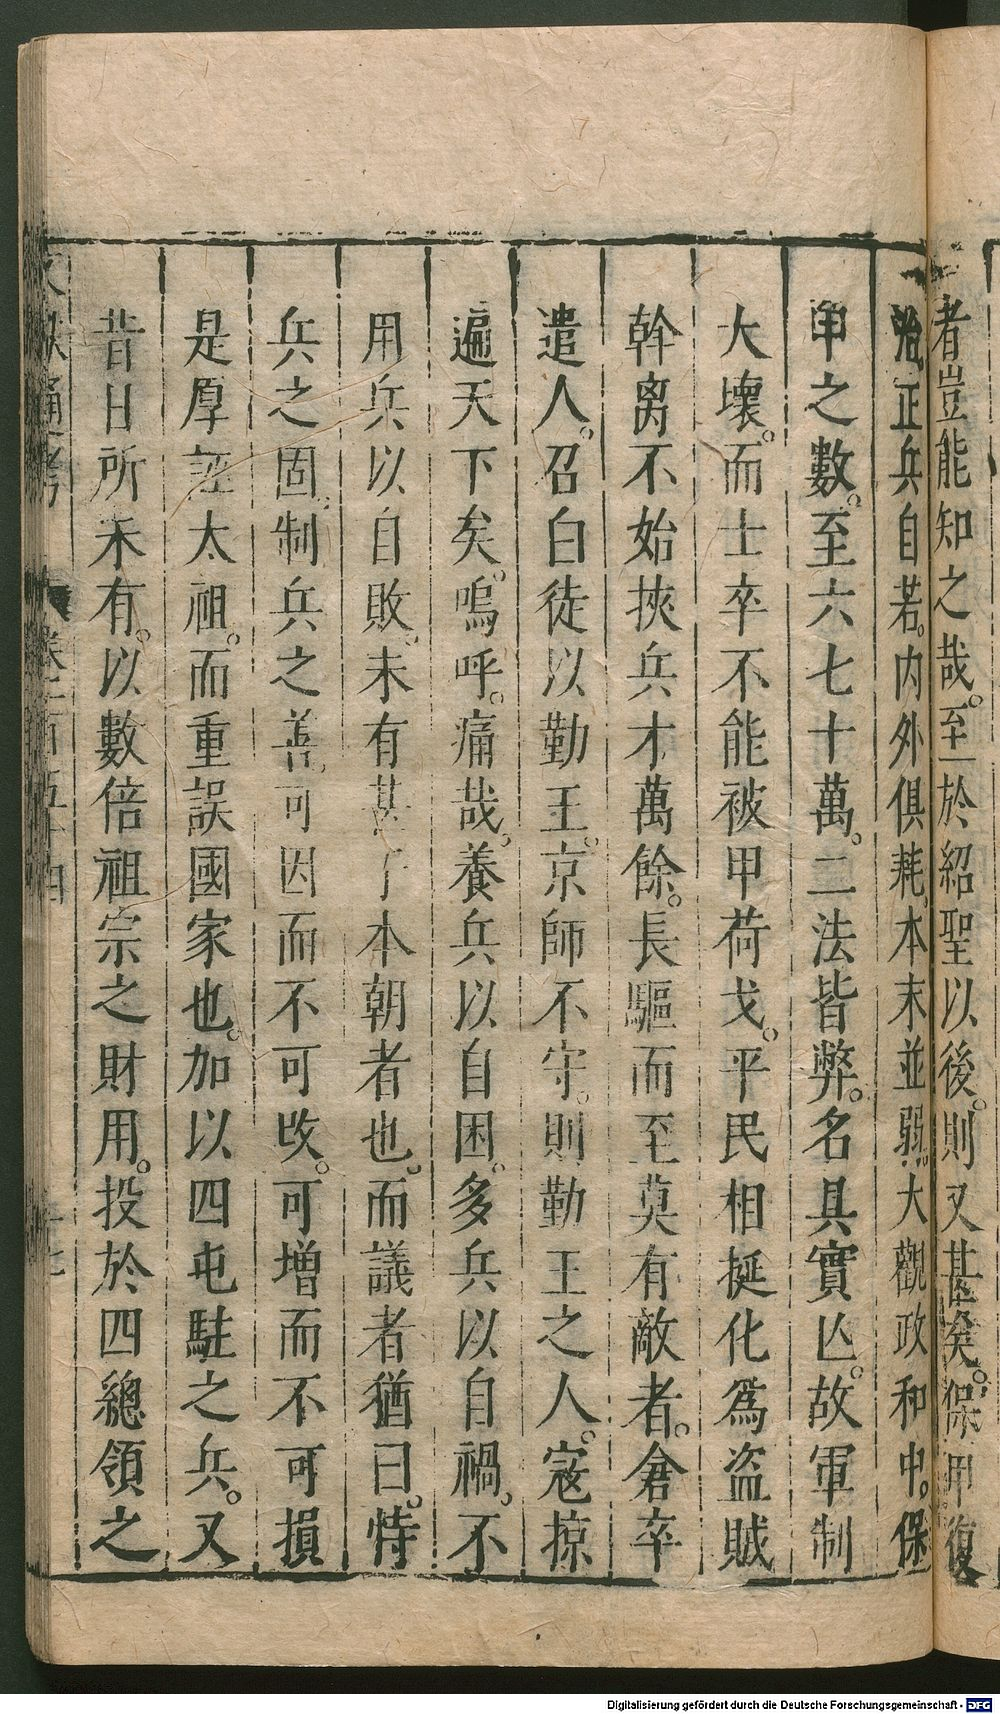 者豈能知之哉。至於紹聖以後。則又甚矣。保甲復
治。正兵自若。内外俱耗。本末並弱。大觀政和中。保
甲之數。至六七十萬。二法皆弊。名具實亾。故軍制
大壞。而士卒不能被甲荷戈。平民相挺化爲盜賊
幹离不始挾兵才萬餘。長驅而至莫有敵者。倉卒
遣人。召白徒以勤王。京師不守。則勤王之人。寇掠
遍天下矣。嗚呼。痛哉。養兵以自困。多兵以自禍。不
用兵以自敗。未有甚于本朝者也。而議者猶曰。恃
兵之固。制兵之善。可因而不可改。可增而不可損
是厚誣太祖。而重誤國家也。加以四屯駐之兵。又
昔日所未有。以數倍祖宗之財用。投於四總領之
文獻通考 卷一百五十四
Digitalisierung gefördert durch die Deutsche Forschungsgemeinschaft - DFG